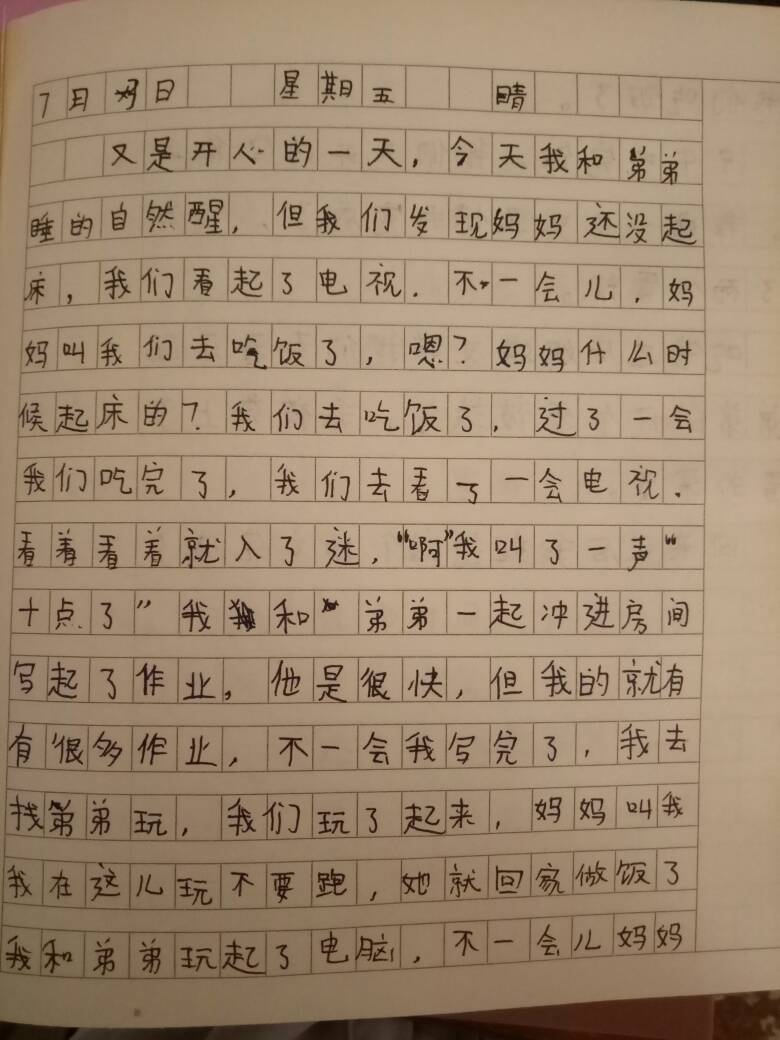 7月 日 星期五 晴
又是开心的一天，今天我和弟弟
睡的自然醒，但我们发现妈妈还没起
床，我们看起了电视．不一会儿．妈
妈叫我们去吃饭了，嗯？妈妈什么时
候起床的？我们去吃饭了，过了一会
我们吃完了，我们去看了一会电视．
看着看着就入了迷，“啊”我叫了一声“
十点了”我和弟弟一起冲进房间
写起了作业，他是很快，但我的就有
有很多作业，不一会我写完了，我去
找弟弟玩，我们玩了起来，妈妈叫我
我在这儿玩不要跑，她就回家做饭了
我和弟弟玩起了电脑，不一会儿妈妈